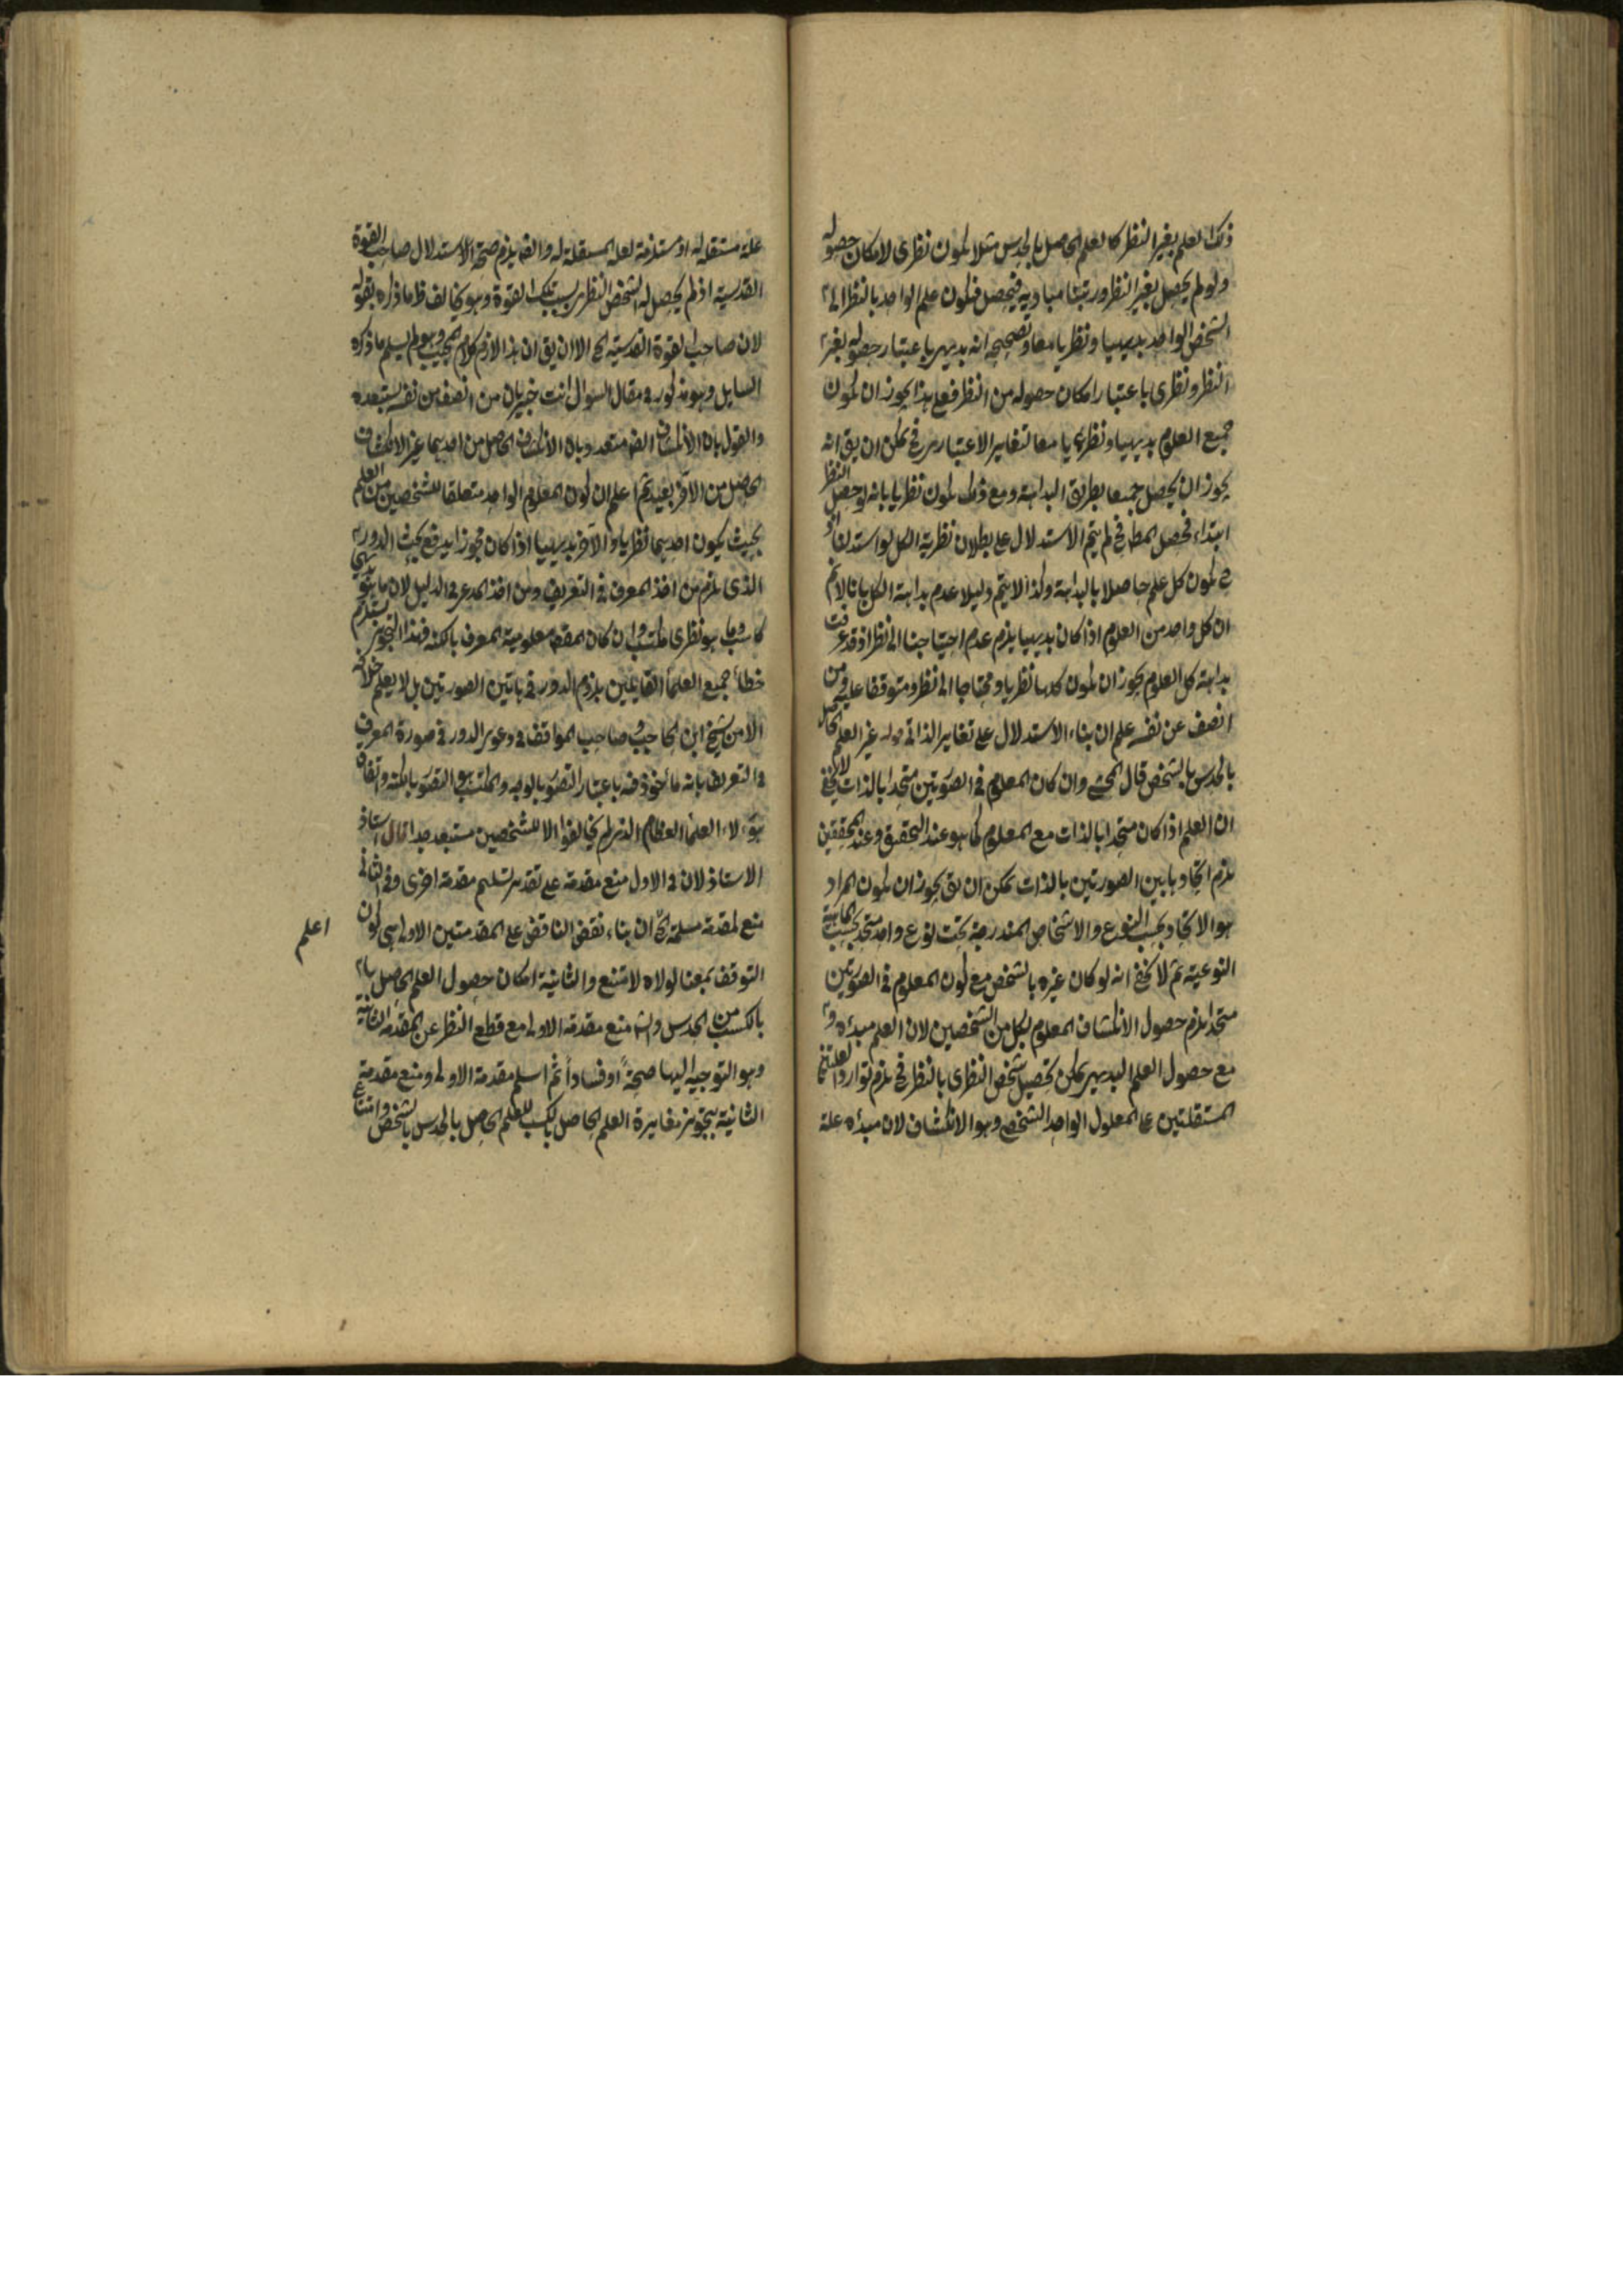 ذلك العلم بغير النظر كالعلم الحاصل بالحدس مثلا يكون نظرى لامكان حصوله
ولو لم يحصل بغير النظر ورتبنا مباديه فيحصل فيكون علم الواحد بالنظر الى
الشخص الواحد بديهيا ونظريا معا وتصحيحه انه بديهى باعتبار حصوله بغير
النظر ونظرى باعتبار امكان حصوله من النظر فعلى هذا يجوز ان يكون
جميع العلوم بديهيا ونظريا معا لتغاير الاعتبارين فح يمكن ان يق انه
يجوز ان يحصل جميعا بطريق البداهة ومع ذلك يكون نظريا بانه لو حصل النظر
ابتداء فحصل المط فح لم يتم الاستدلال على بطلان نظرية الكل لو استدل
ح يكون كل علم حاصلا بالبداهة وكذا لا يتم دليلا عدم بداهة الكل بانا لانم
ان كل واحد من العلوم اذا كان بديهيا يلزم عدم احتياجنا الى نظر اذ قد عرفت
بداهة كل العلوم يجوز ان يكون كلها نظريا ومحتاجا الى نظر ومتوقفا عليه ومن
انصف عن نفسه علم ان بناء الاستدلال على تغاير الذاتى قوله غير العلم الحاصل
بالحدس بالشخص قال المحشى وان كان المعلوم فى الصورتين متحدا بالذات لا يخفى
ان العلم اذا كان متحدا بالذات مع المعلوم كما هو عند التحقيق وعند المحققين
يلزم اتحاد بابين الصورتين بالذات يمكن ان يق يجوز ان يكون المراد
هو الاتحاد بحسب النوع والاشخاص المندرجة تحت نوع واحد متحد بحسب الماهية
النوعية ثم لا يخفى انه لو كان غيره بالشخص مع كون المعلوم فى الصورتين
متحدا يلزم حصول الانكشاف المعلوم بكل من الشخصين لان العلم مبدءه و
مع حصول العلم البديهى يمكن تحصيل شخص النظرى بالنظر فح يلزم توارد العلتين
المستقلتين على المعلول الواحد الشخصى وهو الانكشاف لان مبدءه علة
علة مستقلة له او مستلزمة لعلة المستقلة له وايضا يلزم صحة الاستدلال صاحب القوة
القدسية اذ لم يحصل له الشخص النظرى بسبب تلك القوة وهو يخالف ظ ما ذكره بقوله
لان صاحب القوة القدسية الخ الا ان يق ان هذا لازم كلام المجيب وهو لم يسلم ما ذكره
السايل وهو مذكور فى مقال السوال انت خبير بان من انصف من نفسه يستبعده
والقول بان الانكشاف ايضا متعدد وبان الانكشاف الحاصل من احدهما غير الانكشاف
الحاصل من الآخر بعيد ثم اعلم ان كون المعلوم الواحد متعلقا للشخصين من العلم
بحيث يكون احدهما نظريا والآخر بديهيا اذا كان مجوزا يدفع بحث الدور
الذى يلزم من اخذ المعرف فى التعريف ومن اخذ المدعى فى الدليل لان ما هو بديهى
كاسب وما هو نظرى مكتسب وان كان المقصد معلومية المعرف بالكنه فهذا التجويز يستلزم
خطاء جميع العلماء القايلين بلزوم الدور فى هاتين الصورتين بل لا يعلم خلافه
الا من شيخ ابن الحاجب وصاحب المواقف فى دعوى الدور فى صورة المعرف
فى التعريف بانه مأخوذ فيه باعتبار التصور بالوجه والمكتسب هو التصور بالكنه واتفاق
هؤلاء العلماء العظام الذى لم يخالفوا الا للشخصين مستبعد جدا قال استاذ
الاستاذ لان فى الاول منع مقدمة على تقدير تسليم مقدمة اخرى وفى الثانى
منع لمقدمة مسلمة الخ ان بناء نقض الناقض على المقدمتين الاولى هى كون
التوقف بمعنا لولاه لامتنع والثانية امكان حصول العلم الحاصل
بالكسب من الحدس منع مقدمة الاولى مع قطع النظر عن المقدمة الثانية
وهو التوجيه اليها صحة او فسادا ثم اسلم مقدمة الاولى ومنع مقدمة
الثانية بتجويز مغايرة العلم الحاصل بالكسب للعلم الحاصل بالحدس بالشخص وامتناع
اعلم